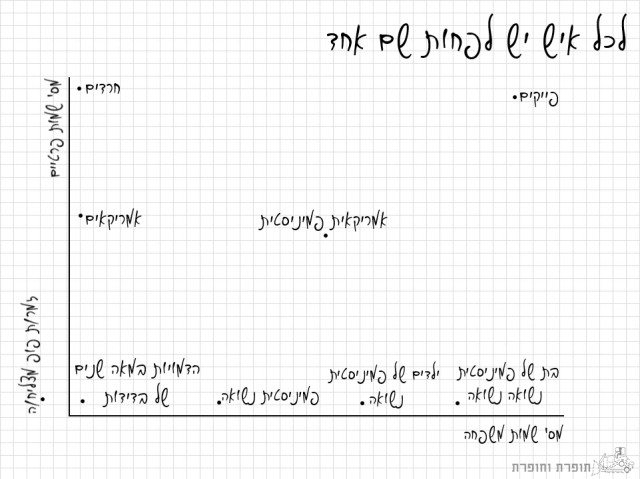 לכל איש יש לפחות שם אחד
מס' שמות פרטיים
חרדים
פייקים
אמריקאים
אמריקאית פמיניסטית
זמרת/ת פופ מצליח/ה
הדמויות במאה שנים
של בדידות
פמיניסטית נשואה
ילדים של פמיניסטית
נשואה
בת של פמיניסטית
נשואה נשואה
מס' שמות משפחה
תופרת וחופרת